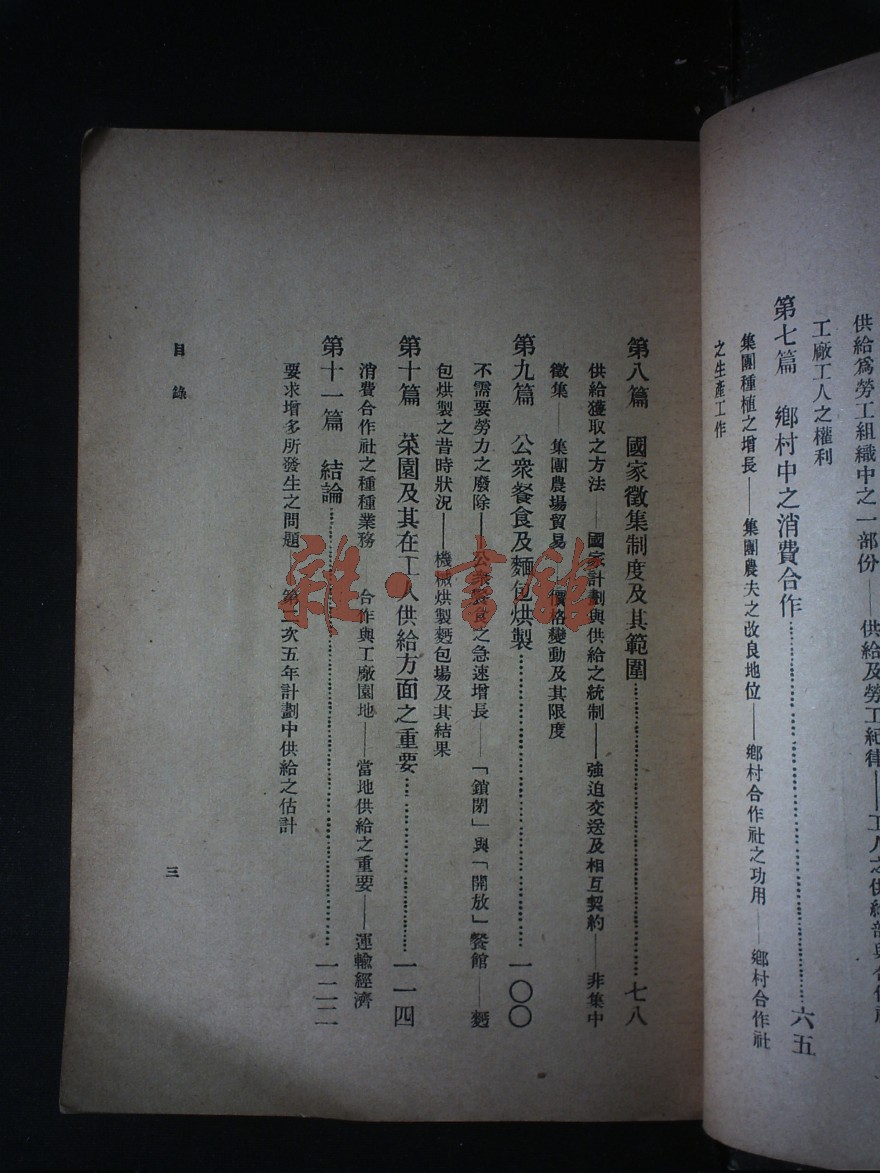 供給爲勞工組織中之一部份——供給及勞工紀律——工人之供給部與合作社
工廠工人之權利
第七篇 鄉村中之消費合作……六五
集團種植之增長——集團農夫之改良地位——鄉村合作社之功用——鄉村合作社
之生產工作
第八篇 國家徵集制度及其範圍……七八
供給獲取之方法——國家計劃與供給之統制——強迫交送及相互契約——非集中
徵集——集團農場貿易 價格變動及其限度
第九篇 公衆餐食及麵包烘製……一〇〇
不需要勞力之廢除——公衆餐食之急速增長——「鎖閉」與「開放」餐館——麵
包烘製之昔時狀況——機械烘製麵包場及其結果
第十篇 菜園及其在工人供給方面之重要……一一四
消費合作社之種種業務 合作與工廠園地——當地供給之重要——運輸經濟
第十一篇 結論……一二二
要求增多所發生之問題 第二次五年計劃中供給之估計
目錄
三
雜·書館